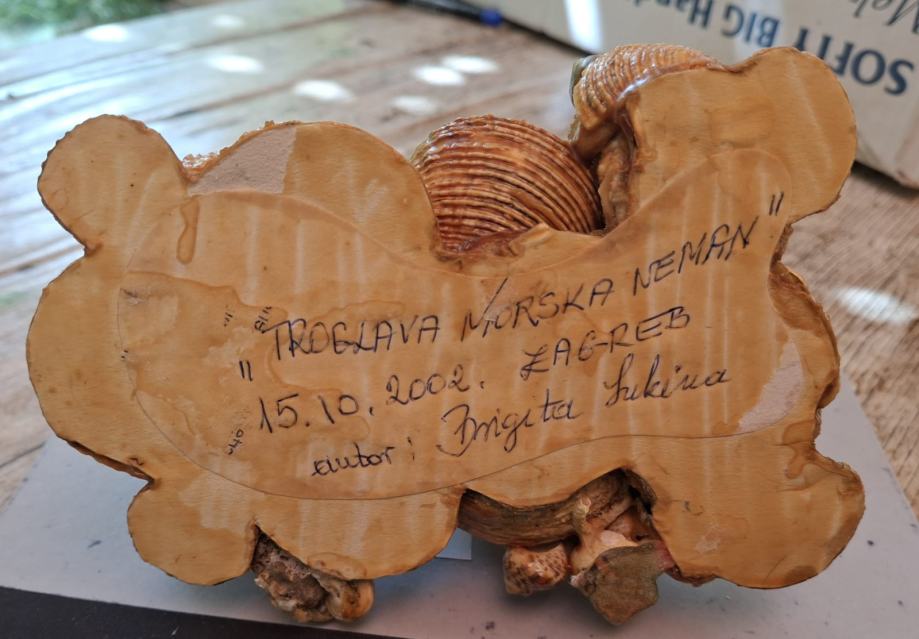 SOFTY BIG Hand
"TROGLAVA MORSKA NEMAN"
15.10.2002. ZAGREB
autor: Brigita Lukina